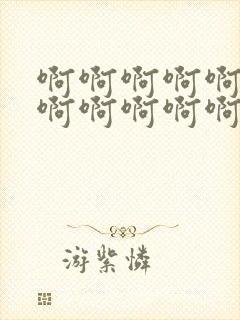 啊啊啊啊啊
啊啊啊啊啊
游紫憐